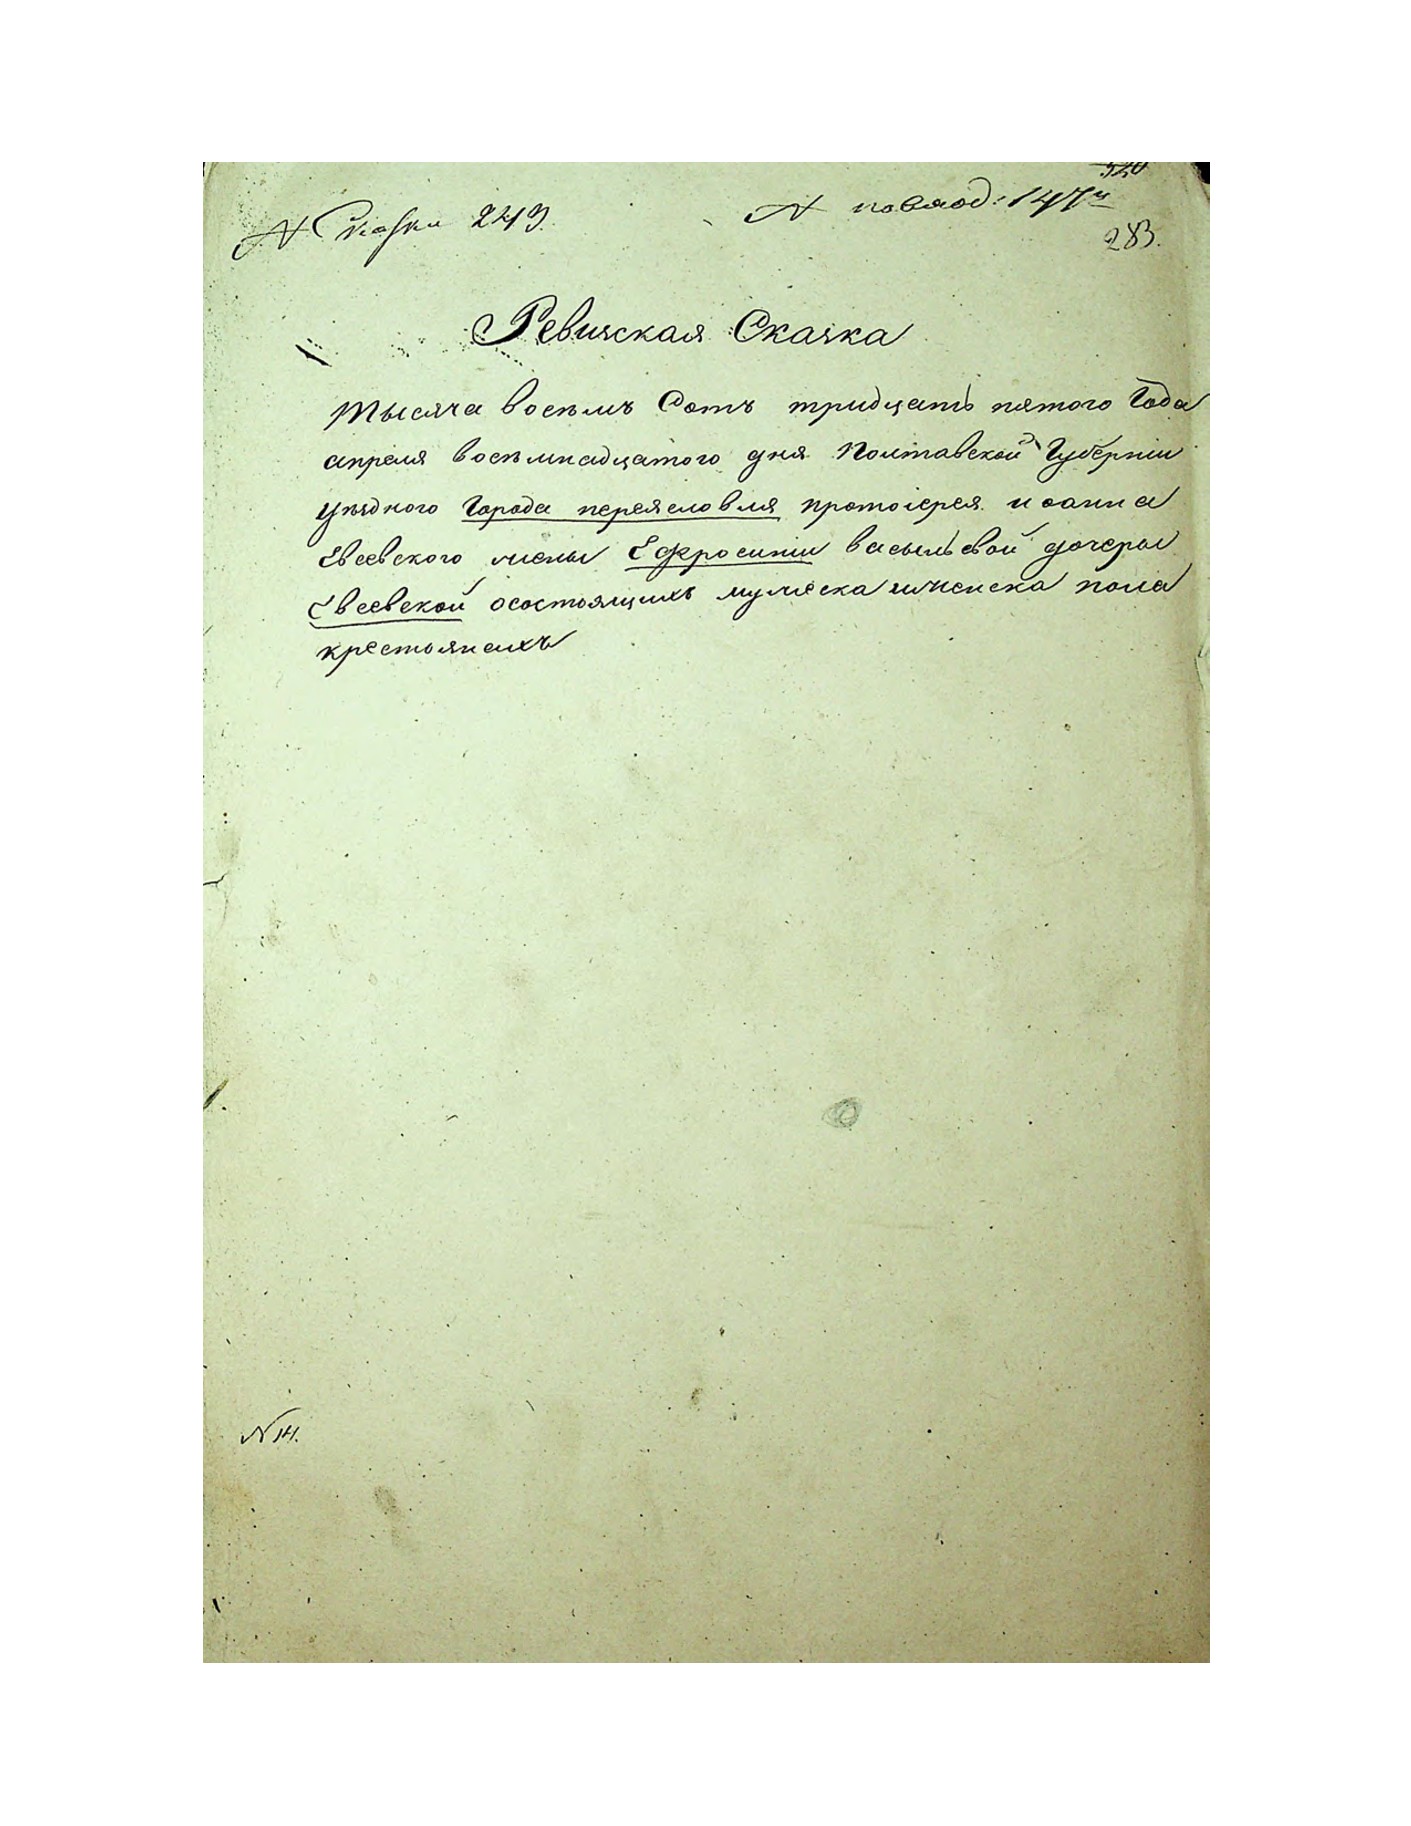 N Сказки 243.
N поряд: 147й
283.
Ревизская Сказка
Тысяча восемъ Сотъ тридцать пятого Года
апреля восемнадцатого дня Полтавской Губерніи
уѣздного Города переясловля протоіерея иоанна
Евсевского жены Ефросиніи васыльевой дочеры
Евсевской осостоящихъ мужеска иженска пола
крестьянахъ
N 14.